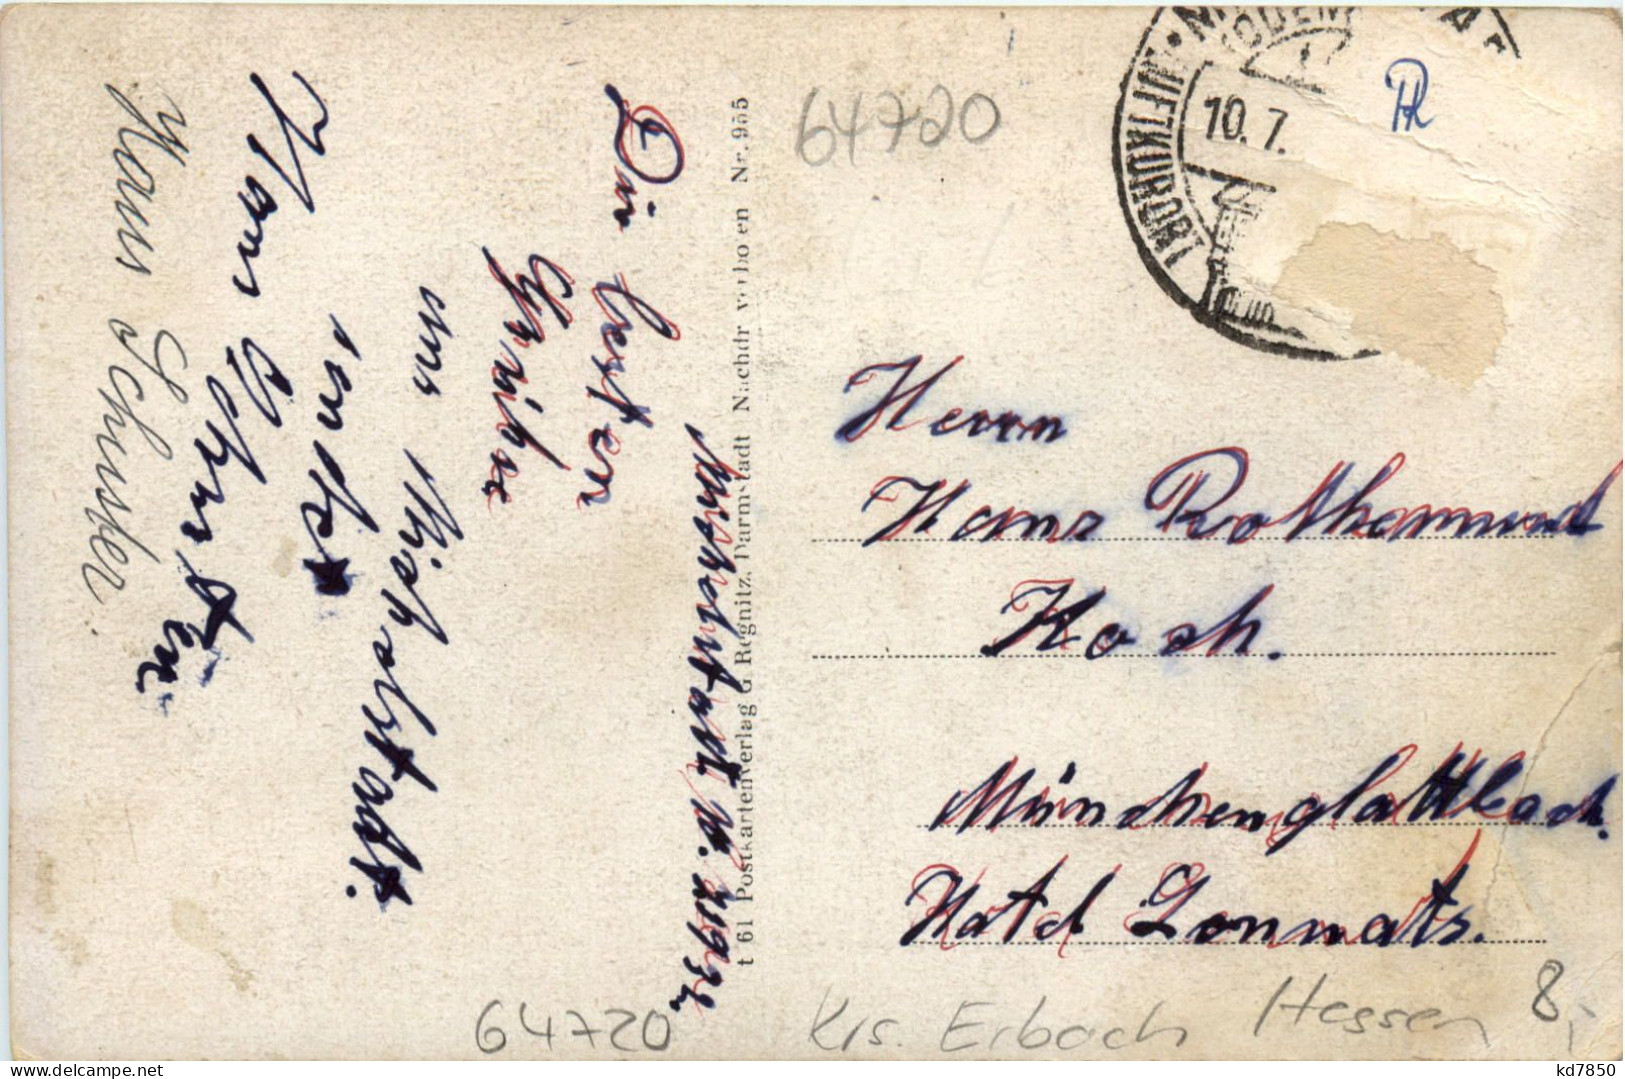 Michelstadt 10.7.1932.
Die besten
Grüße
aus Michelstadt
sendet
Hans
Hans Schuster.
t 61 Postkartenverlag G. Regnitz, Darmstadt Nachdr verboten Nr. 955
64720
LUFTKURORT
ODENW
10. 7.
Herrn
Hans Rothermund
Koch.
Münchenglattbach.
Hotel Lonnats.
64720
Krs. Erbach Hessen 8,-
kd7850